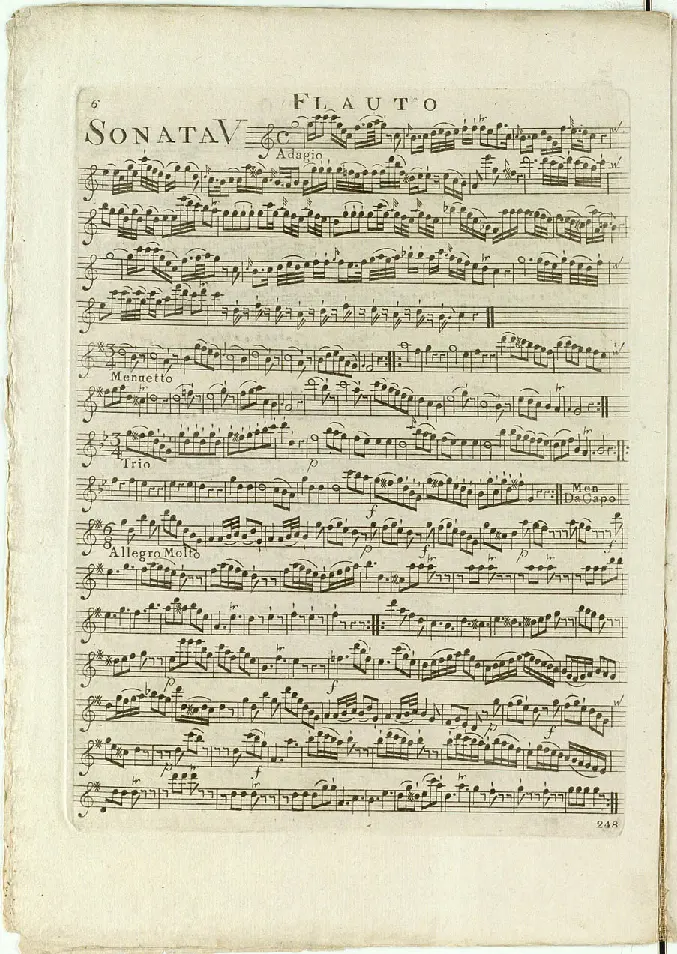 6
FLAUTO
SONATA V
Adagio
Menuetto
Trio
p
f
Men
Da Capo
Allegro Molto
p
f
p
p
f
p
f
p
f
248